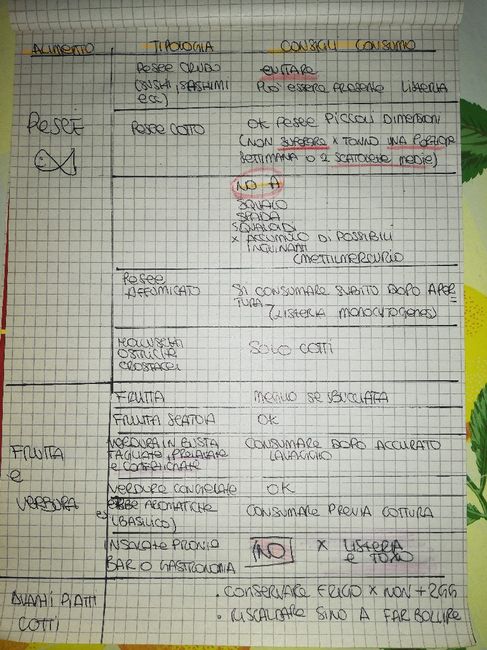 ALIMENTO TIPOLOGIA CONSIGLI CONSUMO
PESCE CRUDO EVITARE
(SUSHI, SASHIMI PUÒ ESSERE PRESENTE LISTERIA
ECC)
PESCE
PESCE COTTO OK PESCE PICCOLI DIMENSIONI
(NON SUPERARE X TONNO UNA PORZIONE
SETTIMANA O 2 SCATOLETTE MEDIE)
NO A
SQUALO
SPADA
SQUALOIDI
X ACCUMULO DI POSSIBILI
INQUINANTI
(METILMERCURIO
PESCE
AFFUMICATO SI CONSUMARE SUBITO DOPO APER
TURA (LISTERIA MONOCYTOGENES)
MOLLUSCHI
OSTRICHE SOLO COTTI
CROSTACEI
FRUTTA MEGLIO SE SBUCCIATA
FRUTTA SCATOLA OK
FRUTTA
E
VERDURA
VERDURA IN BUSTA CONSUMARE DOPO ACCURATO
TAGLIATE, PRELAVATE LAVAGGIO
E CONFEZIONATE
VERDURE CONGELATE OK
ERBE AROMATICHE CONSUMARE PREVIA COTTURA
(BASILICO)
INSALATE PRONTE NO X LISTERIA
BAR O GASTRONOMIA E TOXO
AVANZI PIATTI
COTTI
• CONSERVARE FRIGO X NON + 2GG
• RISCALDARE SINO A FAR BOLLIRE